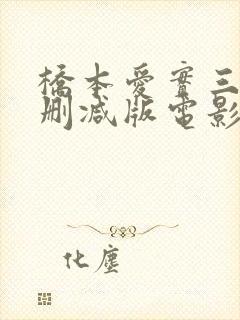 橋本愛實三
刪减版電影
化塵